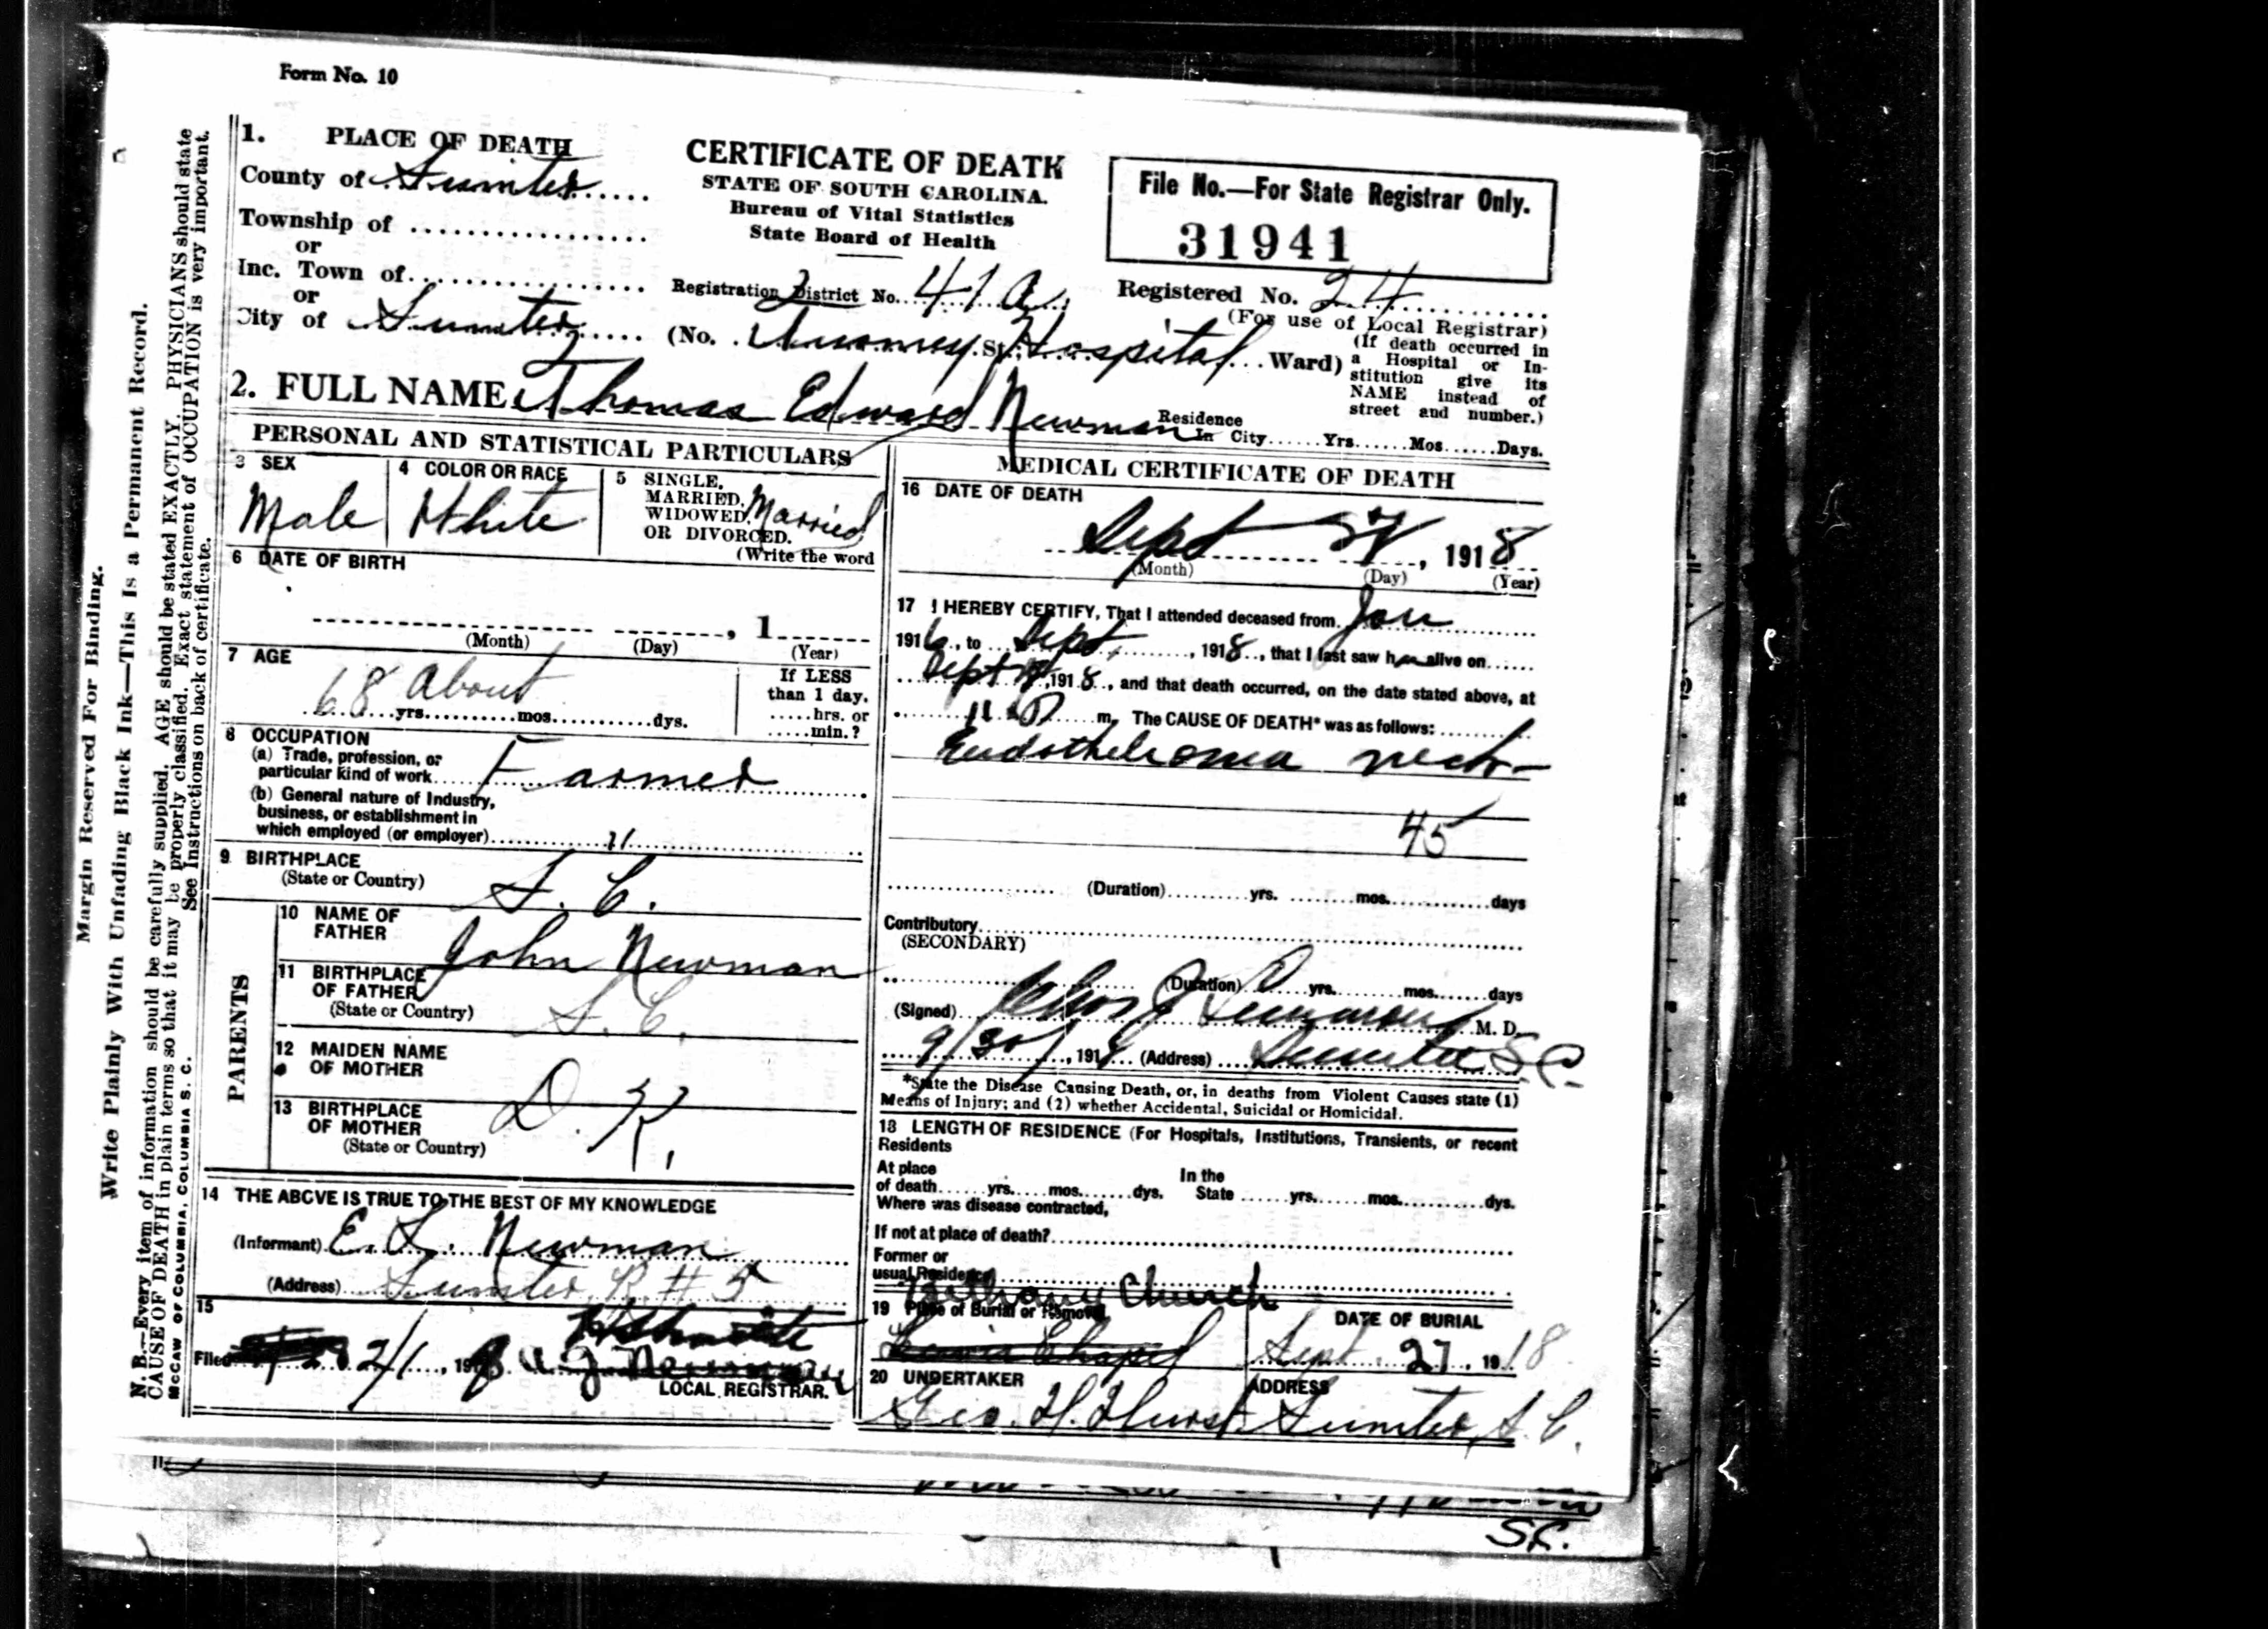 Form No. 10
1. PLACE OF DEATH
County of Sumter
Township of
or
Inc. Town of
or
City of Sumter
CERTIFICATE OF DEATH
STATE OF SOUTH CAROLINA.
Bureau of Vital Statistics
State Board of Health
Registration District No. 41 a
(No. Hospital St.; Ward)
File No.—For State Registrar Only.
31941
Registered No. 24
(For use of Local Registrar)
(If death occurred in
a Hospital or In-
stitution give its
NAME instead of
street and number.)
2. FULL NAME Thomas Edward Newman
Residence
In City......Yrs......Mos......Days.
PERSONAL AND STATISTICAL PARTICULARS
3 SEX
Male
4 COLOR OR RACE
White
5 SINGLE,
MARRIED,
WIDOWED,
OR DIVORCED.
(Write the word
Married
6 DATE OF BIRTH
, 1
(Month) (Day) (Year)
7 AGE
68 About
yrs. mos. dys.
If LESS
than 1 day.
.....hrs. or
.....min.?
8 OCCUPATION
(a) Trade, profession, or
particular kind of work Farmer
(b) General nature of Industry,
business, or establishment in
which employed (or employer) "
9 BIRTHPLACE
(State or Country) S. C.
PARENTS
10 NAME OF
FATHER John Newman
11 BIRTHPLACE
OF FATHER
(State or Country) S. C.
12 MAIDEN NAME
OF MOTHER
D. K.
13 BIRTHPLACE
OF MOTHER
(State or Country)
14 THE ABOVE IS TRUE TO THE BEST OF MY KNOWLEDGE
(Informant) E. L. Newman
(Address) Sumter R. # 5
15
Filed 2/1, 191
LOCAL REGISTRAR.
MEDICAL CERTIFICATE OF DEATH
16 DATE OF DEATH
Sept , 1918
(Month) (Day) (Year)
17 I HEREBY CERTIFY, That I attended deceased from Jan
1916, to Sept, 1918, that I last saw him alive on
Sept , 1918, and that death occurred, on the date stated above, at
11 m. The CAUSE OF DEATH* was as follows:
Endothelioma neck
45
(Duration) yrs. mos. days
Contributory
(SECONDARY)
(Duration) yrs. mos. days
(Signed) Chas J M. D.
9/30, 1918 (Address) Sumter S.C.
*State the Disease Causing Death, or, in deaths from Violent Causes state (1)
Means of Injury; and (2) whether Accidental, Suicidal or Homicidal.
18 LENGTH OF RESIDENCE (For Hospitals, Institutions, Transients, or recent
Residents
At place In the
of death......yrs.....mos......dys. State ......yrs......mos..........dys.
Where was disease contracted,
If not at place of death?
Former or
usual Residence
Bethany Church
19 Place of Burial or Removal
Lewis Chapel
DATE OF BURIAL
Sept. 27, 1918
20 UNDERTAKER
Geo. H. Hurst
ADDRESS
Sumter, S. C.
Margin Reserved For Binding.
Write Plainly With Unfading Black Ink—This Is a Permanent Record.
N. B.—Every item of information should be carefully supplied. AGE should be stated EXACTLY. PHYSICIANS should state
CAUSE OF DEATH in plain terms so that it may be properly classified. Exact statement of OCCUPATION is very important.
See Instructions on back of certificate.
McCAW OF COLUMBIA, COLUMBIA S. C.
S.C.